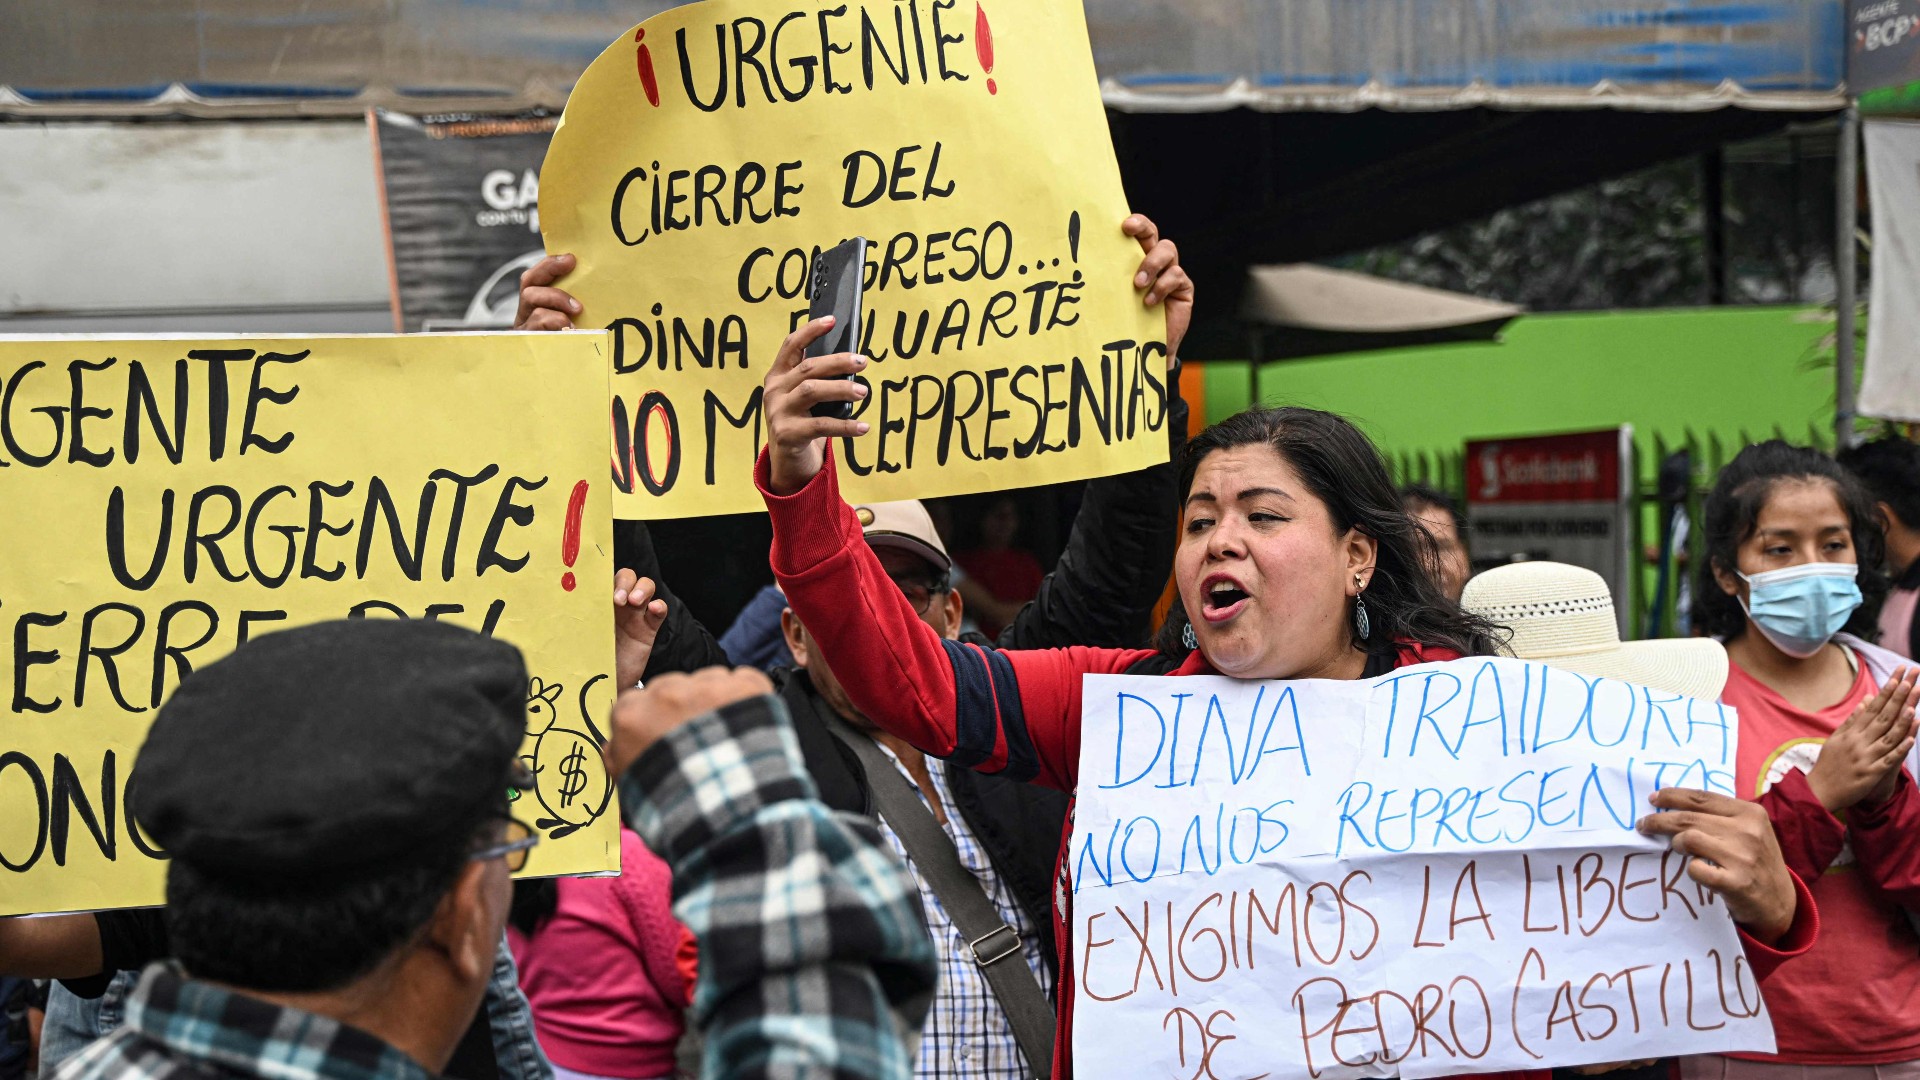 ¡URGENTE!
CIERRE DEL
CONGRESO...!
DINA BOLUARTE
NO ME REPRESENTAS
GENTE
URGENTE!
ERRE DEL
ONG
$
DINA TRAIDORA
NO NOS REPRESENTAS
EXIGIMOS LA LIBERTA
DE PEDRO CASTILLO
GA
CON TU
Scotiabank
AGENTE
BCP